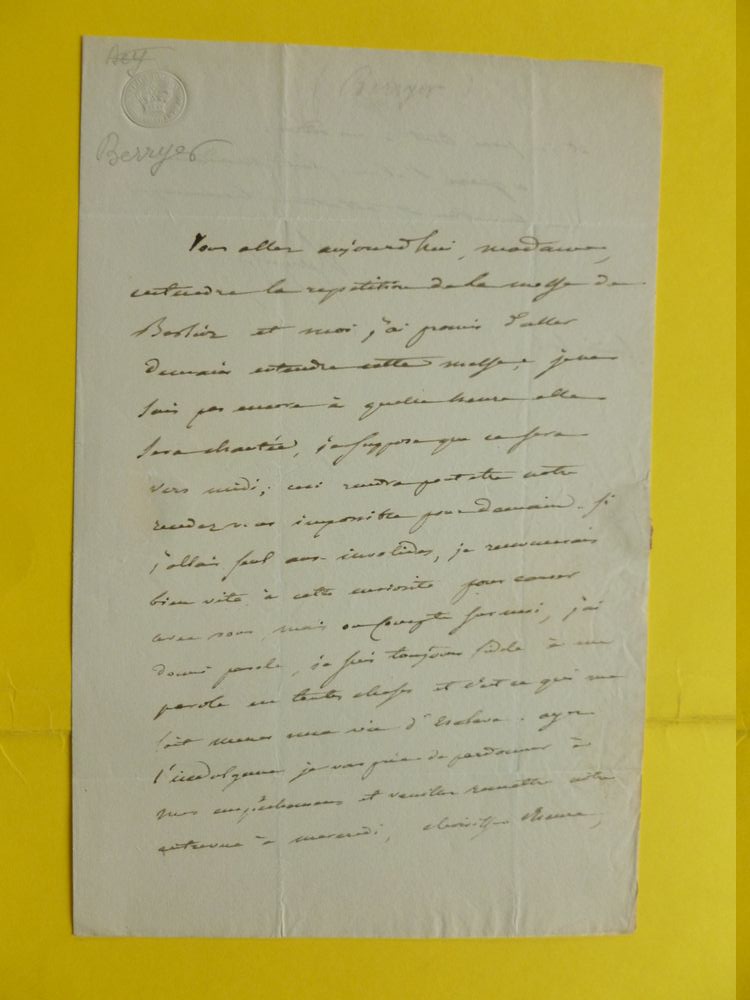 Berryer
Berryer
Vous allez aujourd'hui, madame,
entendre la repetition de la messe de
Berlioz et moi, j'ai promis d'aller
demain entendre cette messe; je ne
sais pas encore à quelle heure elle
sera chantée, je suppose que ce sera
vers midi; ceci rendra peut etre notre
rendez-vous impossible pour demain. Si
j'allais seul aux invalides, je renoncerais
bien vite à cette curiosité pour causer
avec vous, mais on compte sur moi, j'ai
donné parole, je suis toujours fidele à ma
parole en toutes choses et c'est ce qui me
fait mener une vie d'Esclave. ayez
l'indulgence je vous prie de pardonner à
mes empêchemens et veuillez remettre notre
entrevue à mercredi, choisissez l'heure,